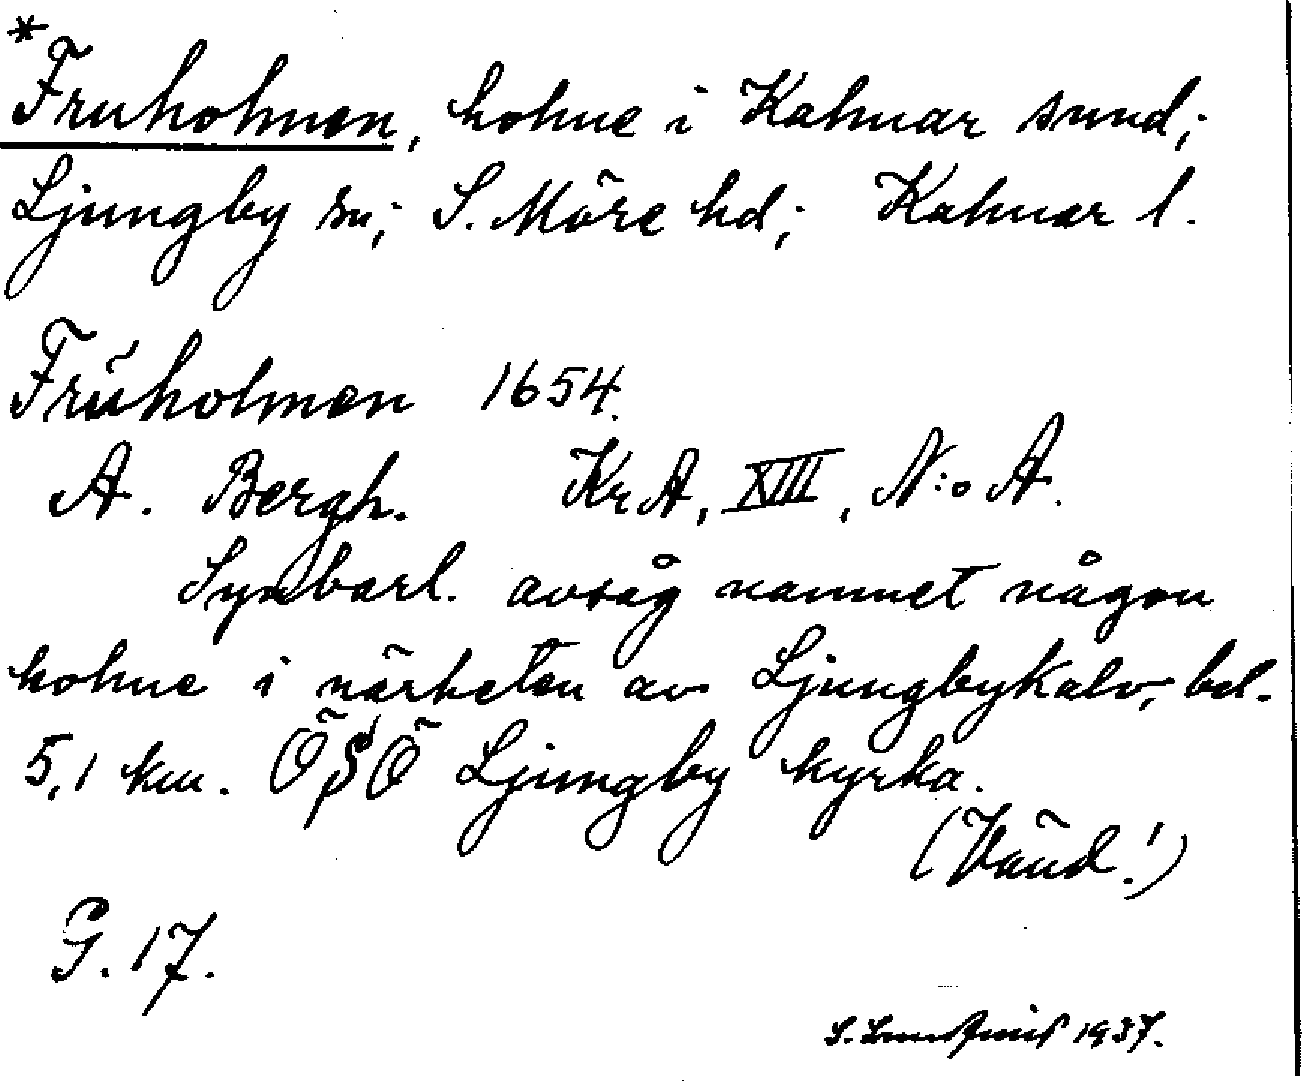 *
Fruholmen, holme i Kalmar sund;
Ljungby sn; S. Möre hd; Kalmar l.
Frŭholmen 1654.
A. Bergh. KrA, XIII, N:o A.
Synbarl. avsåg namnet någon
holme i närheten av Ljungbykalv, bel.
5,1 km. ÖSÖ Ljungby kyrka.
(Vänd!)
G. 17.
S. 1937.